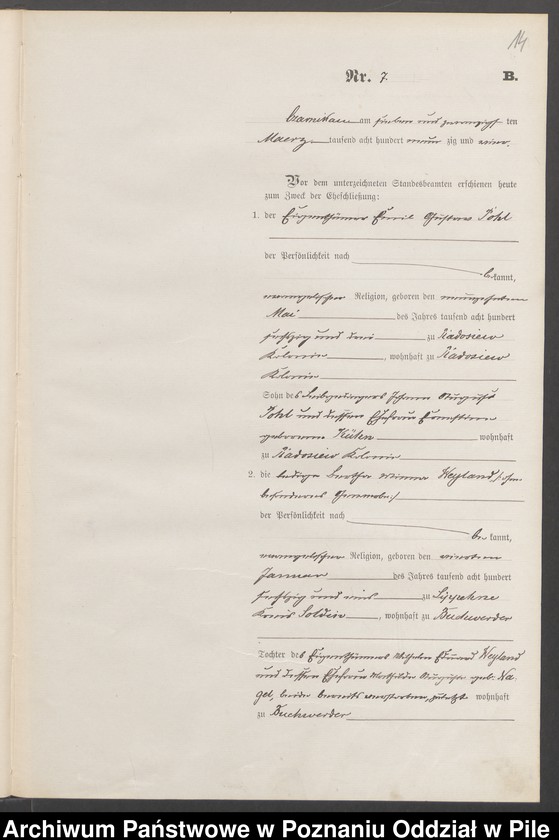 14
Nr. 7. B.
Czarnikau am sieben und zwanzigsten
Maerz tausend acht hundert neun zig und eins.
Vor dem unterzeichneten Standesbeamten erschienen heute
zum Zweck der Eheschließung:
1. der Eigenthümer Emil Gustav Pohl
der Persönlichkeit nach
bekannt,
evangelischer Religion, geboren den neunzehnten
Mai des Jahres tausend acht hundert
sechszig und drei zu Radosiew
Kolonie, wohnhaft zu Radosiew
Kolonie
Sohn des Leibgedingers Johann August
Pohl und dessen Ehefrau Ernestine
geborenen Küten wohnhaft
zu Radosiew Kolonie
2. die ledige Bertha Minna Weyland /: ohne
besonderes Gewerbe :/
der Persönlichkeit nach
bekannt,
evangelischer Religion, geboren den
Januar des Jahres tausend acht hundert
sechszig und eins zu Lippehne
Kreis Soldin, wohnhaft zu Buchwerder
Tochter des Eigenthümers Wilhelm Eduard Weyland
und dessen Ehefrau Mathilde Auguste geb. Na-
gel, beide bereits verstorben, zuletzt wohnhaft
zu Buchwerder
Archiwum Państwowe w Poznaniu Oddział w Pile